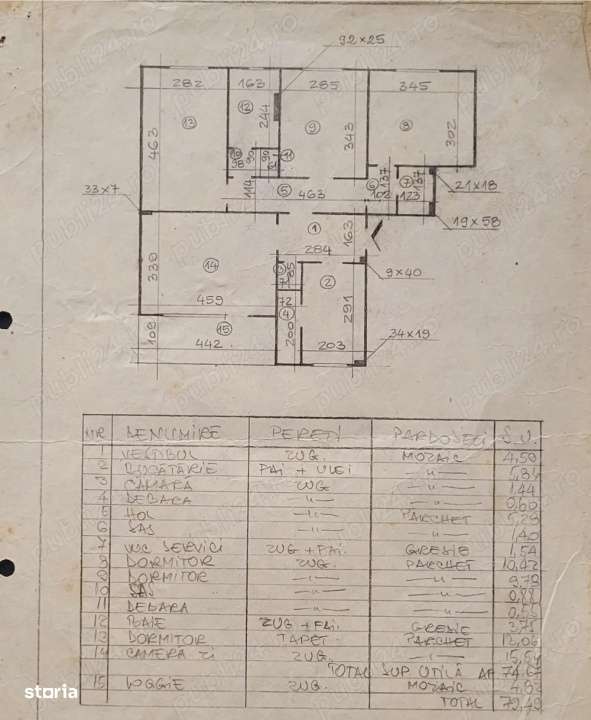 92×25
282
163
285
345
13
12
244
9
8
463
343
302
98
90
90
11
137
137
114
5
463
6
102
7
123
21×18
33×7
19×58
1
163
284
9×40
14
330
3
85
2
459
72
4
291
15
108
442
200
203
34×19
NR DENUMIRE PERETI PARDOSELI S.U.
1 VESTIBUL ZUG. MOZAIC 4,50
2 BUCATARIE FAI + ULEI —"—
3 CAMARA ZUG —"— 1,44
4 DEBARA —"— —"— 0,60
5 HOL —"— PARCHET 5,29
6 SAS —"— —"— 1,40
7 WC SERVICI ZUG + FAI. GRESIE 1,54
8 DORMITOR ZUG. PARCHET 10,42
9 DORMITOR —"— —"— 9,78
10 SAS —"— —"— 0,88
11 DEBARA —"— —"—
12 BAIE ZUG + FAI. GRESIE
13 DORMITOR TAPET. PARCHET 13,06
14 CAMERA ZI ZUG. —"—
TOTAL SUP UTILĂ AP 74,67
15 LOGGIE ZUG. MOZAIC
TOTAL
storia
publi24.ro